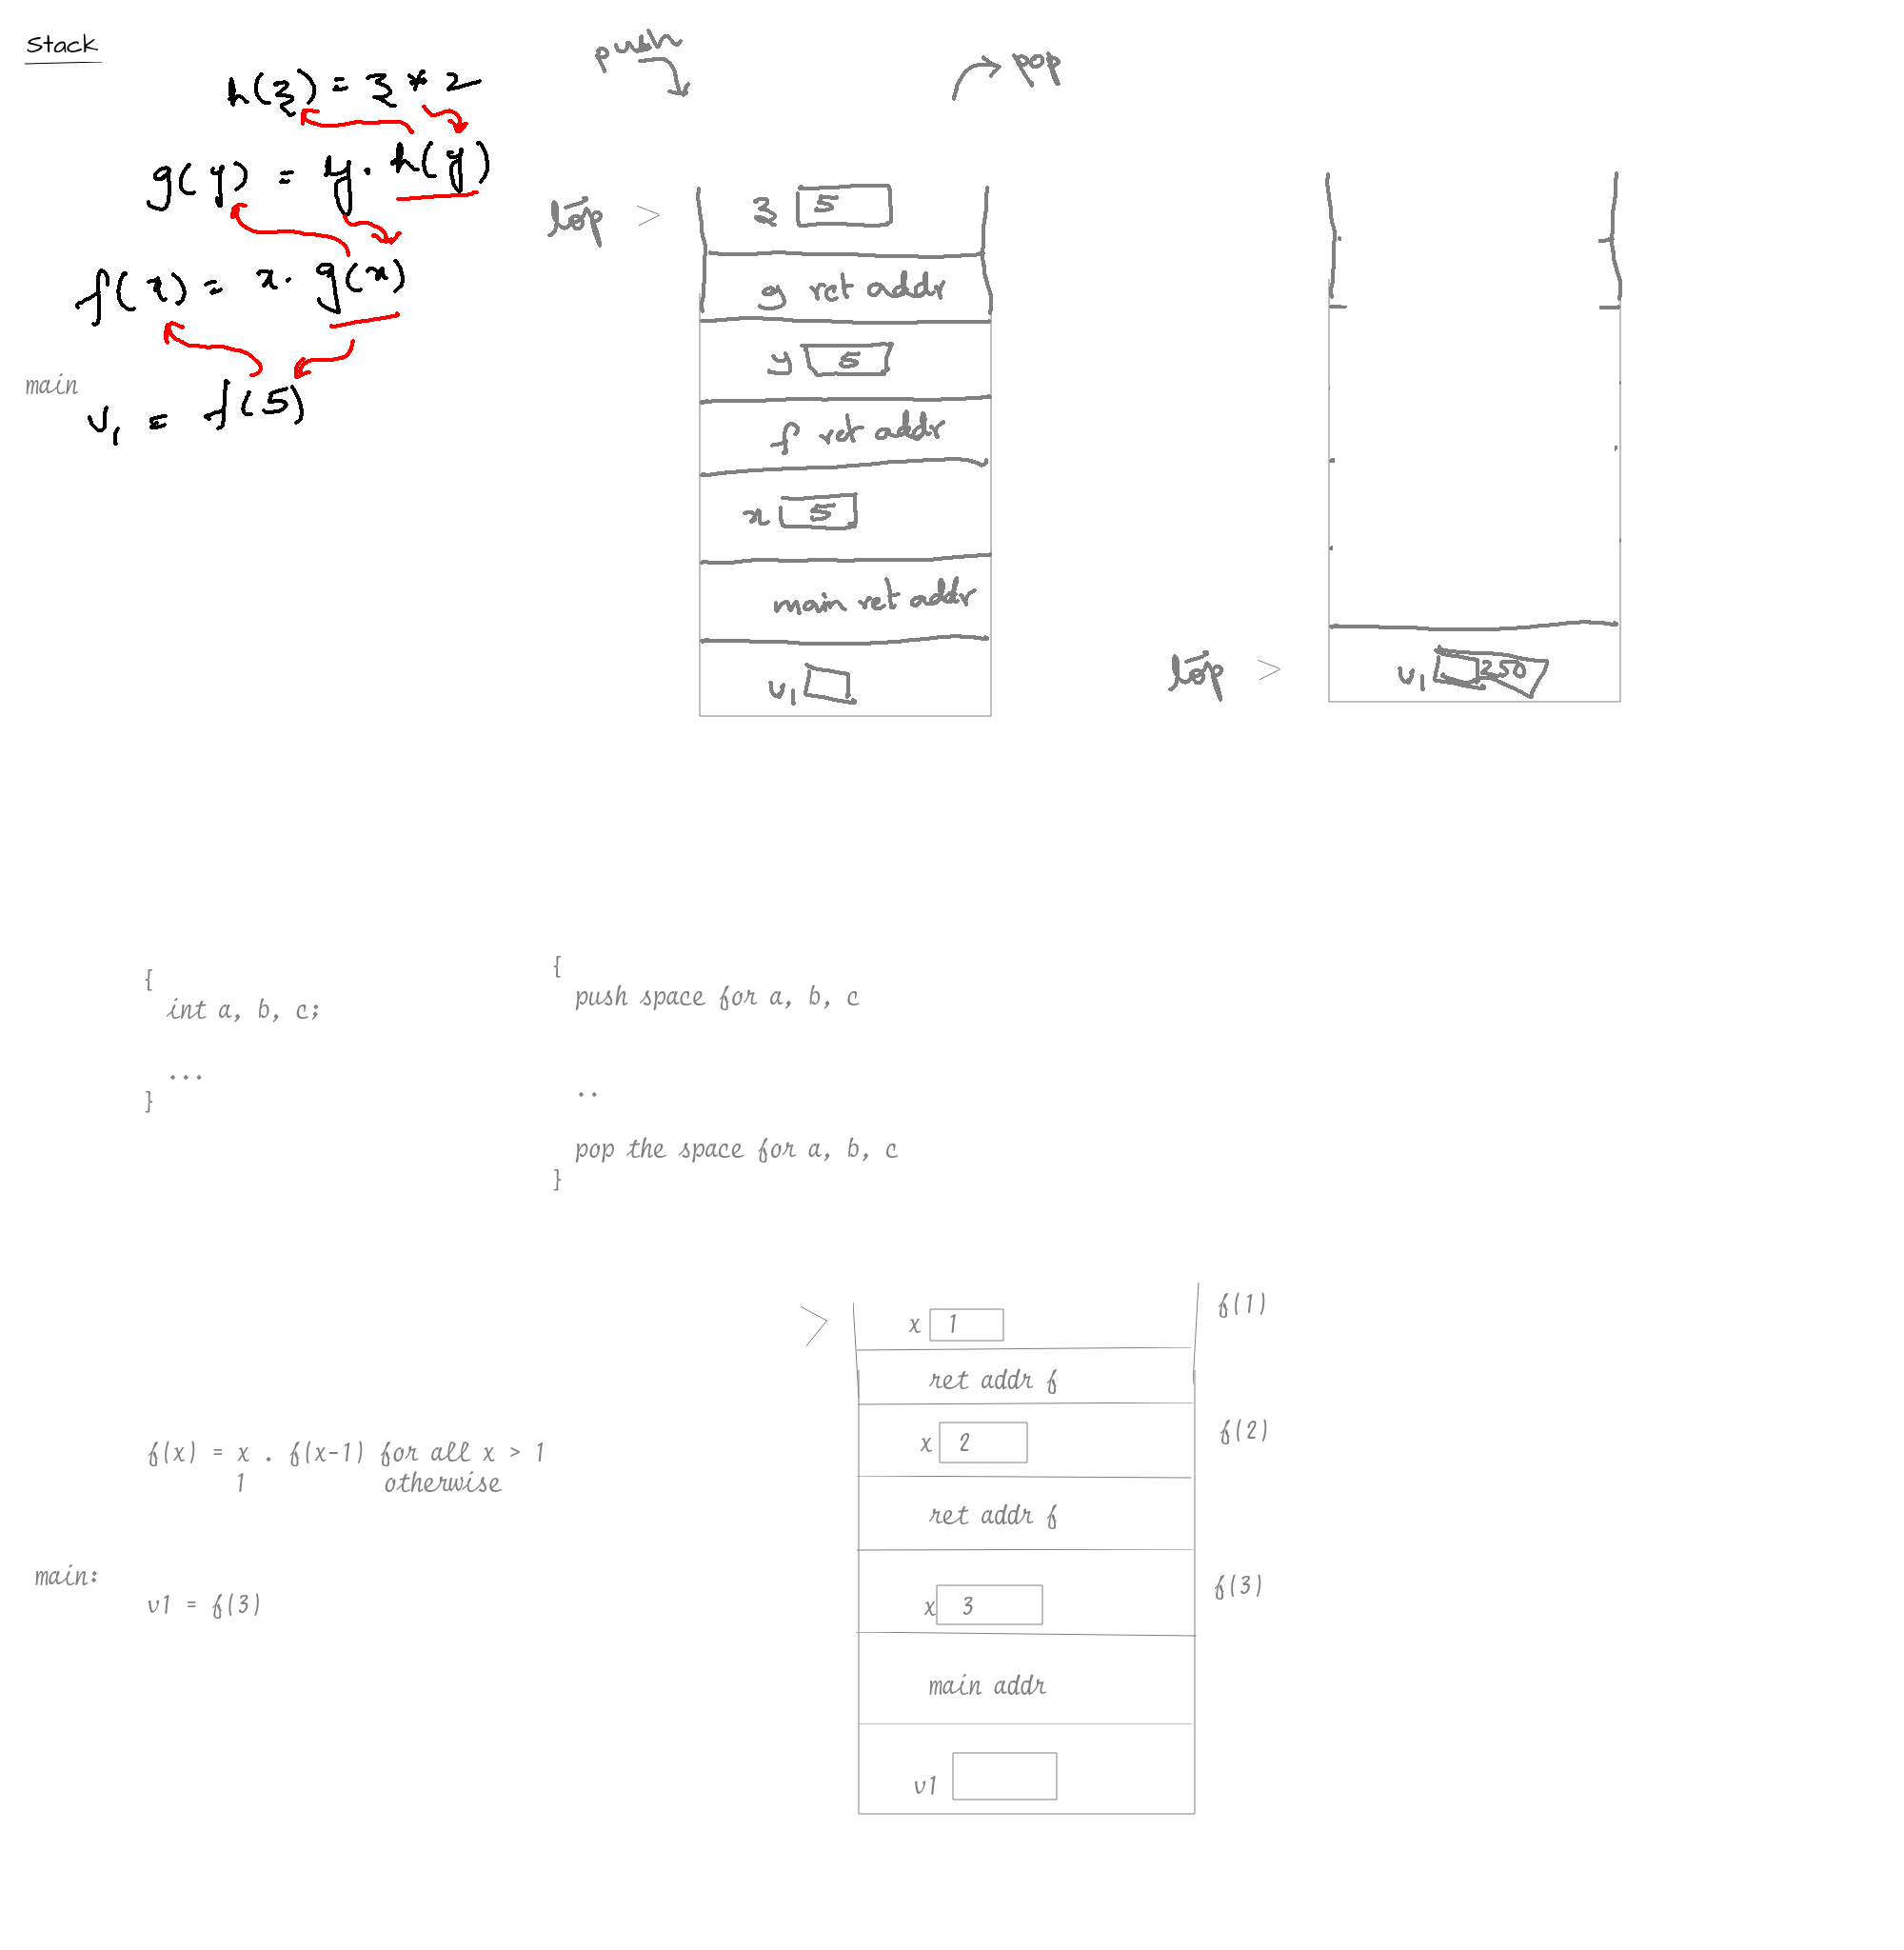 Stack
push
pop
h(z) = z * 2
g(y) = y . h(y)
f(x) = x . g(x)
main
v1 = f(5)
top >
z 5
g ret addr
y 5
f ret addr
x 5
main ret addr
v1
top >
v1 250
{
int a, b, c;
...
}
{
push space for a, b, c
..
pop the space for a, b, c
}
f(x) = x . f(x-1) for all x > 1
1 otherwise
main:
v1 = f(3)
>
x 1 f(1)
ret addr f
x 2 f(2)
ret addr f
x 3 f(3)
main addr
v1